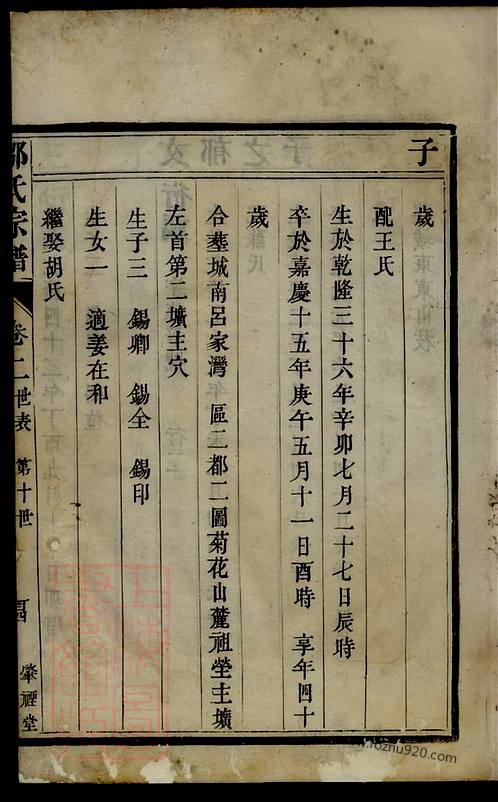 子
歲
配王氏
生於乾隆三十六年辛卯七月二十七日辰時
卒於嘉慶十五年庚午五月十一日酉時　享年四十
歲
合塟城南呂家灣　區二都二圖菊花山麓祖塋主壙
左首第二壙主穴
生子三　錫卿　錫全　錫印
生女一　適姜在和
繼娶胡氏
氏宗譜
卷二
世表
第十世
肇禋堂
www.roznu920.com